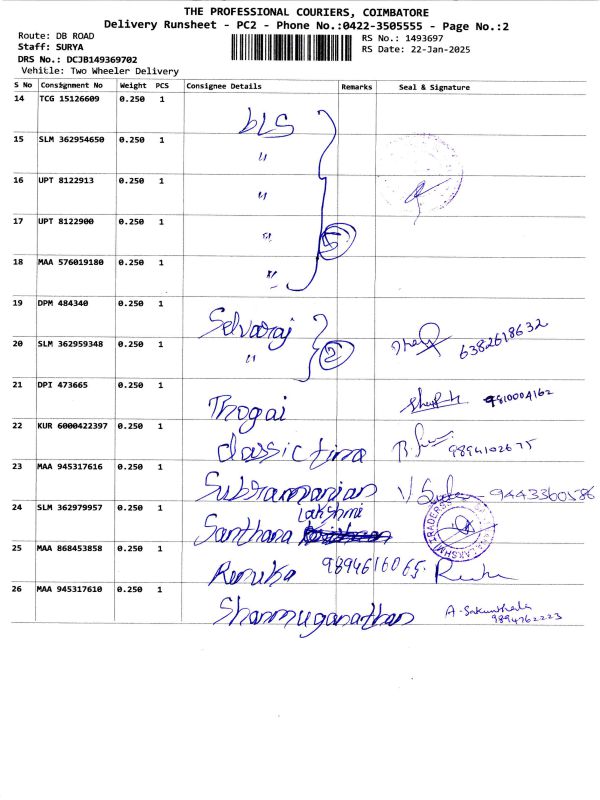 THE PROFESSIONAL COURIERS, COIMBATORE
Delivery Runsheet - PC2 - Phone No.:0422-3505555 - Page No.:2
Route: DB ROAD
RS No.: 1493697
Staff: SURYA
RS Date: 22-Jan-2025
DRS No.: DCJB149369702
Vehitle: Two Wheeler Delivery
S No Consignment No Weight PCS Consignee Details Remarks Seal & Signature
14 TCG 15126609 0.250 1 bLS
15 SLM 362954650 0.250 1 "
16 UPT 8122913 0.250 1 "
17 UPT 8122900 0.250 1 " 5
18 MAA 576019180 0.250 1 "
19 DPM 484340 0.250 1 Selvaraj
20 SLM 362959348 0.250 1 " 2 6382618632
21 DPI 473665 0.250 1 Thogai 9810004162
22 KUR 6000422397 0.250 1 classic time 9894102675
23 MAA 945317616 0.250 1 Subramanian 9443360586
24 SLM 362979957 0.250 1 Santhana Lakshmi
25 MAA 868453858 0.250 1 Renuka 9894616065.
26 MAA 945317610 0.250 1 Shanmuganathan A-Sakunthala
9894762223